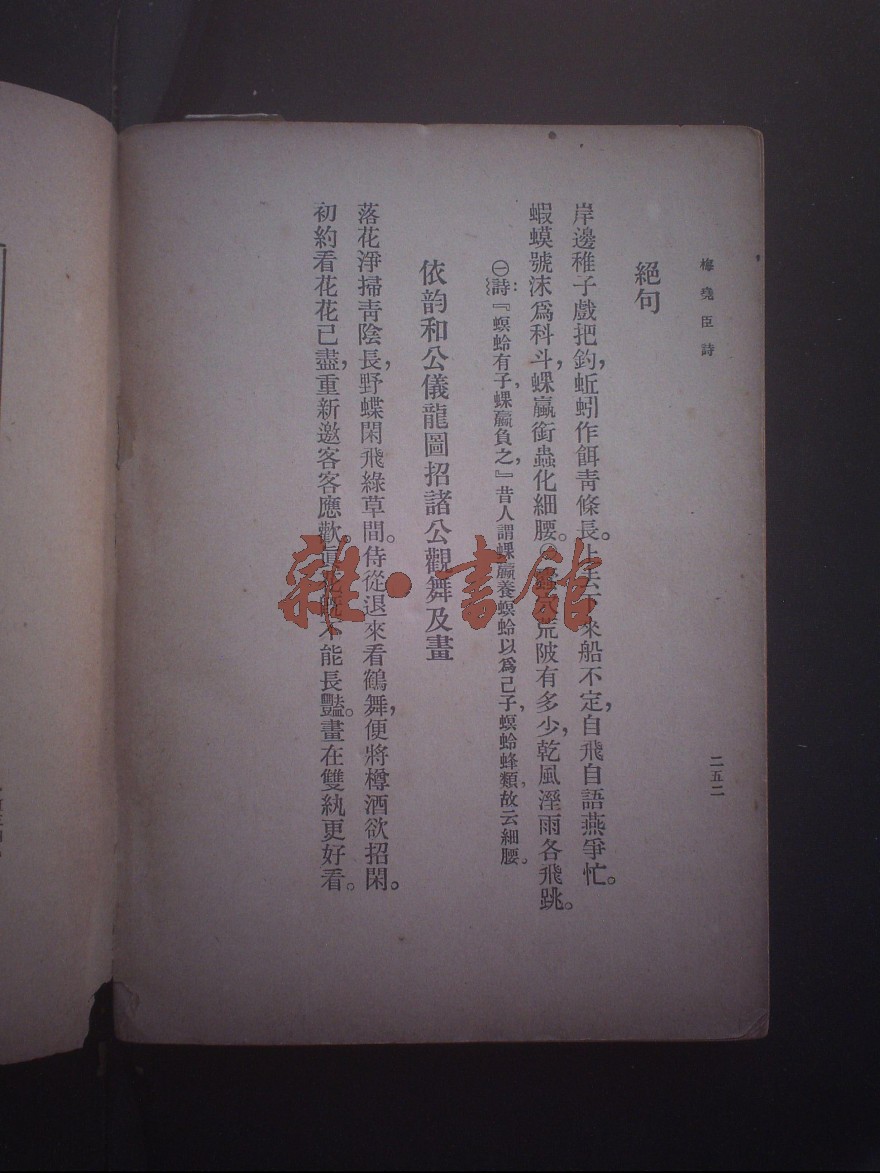 梅堯臣詩
二五二
絕句
岸邊稚子戲把釣，蚯蚓作餌青條長。上去下來船不定，自飛自語燕爭忙。
蝦蟆號沫爲科斗，蜾蠃銜蟲化細腰。㊀ 荒陂有多少，乾風溼雨各飛跳。
㊀詩：『螟蛉有子，蜾蠃負之，』昔人謂蜾蠃養螟蛉以爲己子，螟蛉蜂類，故云細腰。
依韵和公儀龍圖招諸公觀舞及畫
落花淨掃青陰長，野蝶閑飛綠草間。侍從退來看鶴舞，便將樽酒欲招閑。
初約看花花已盡，重新邀客客應歡。眞 不能長豔。畫在雙紈更好看。
雜·書館